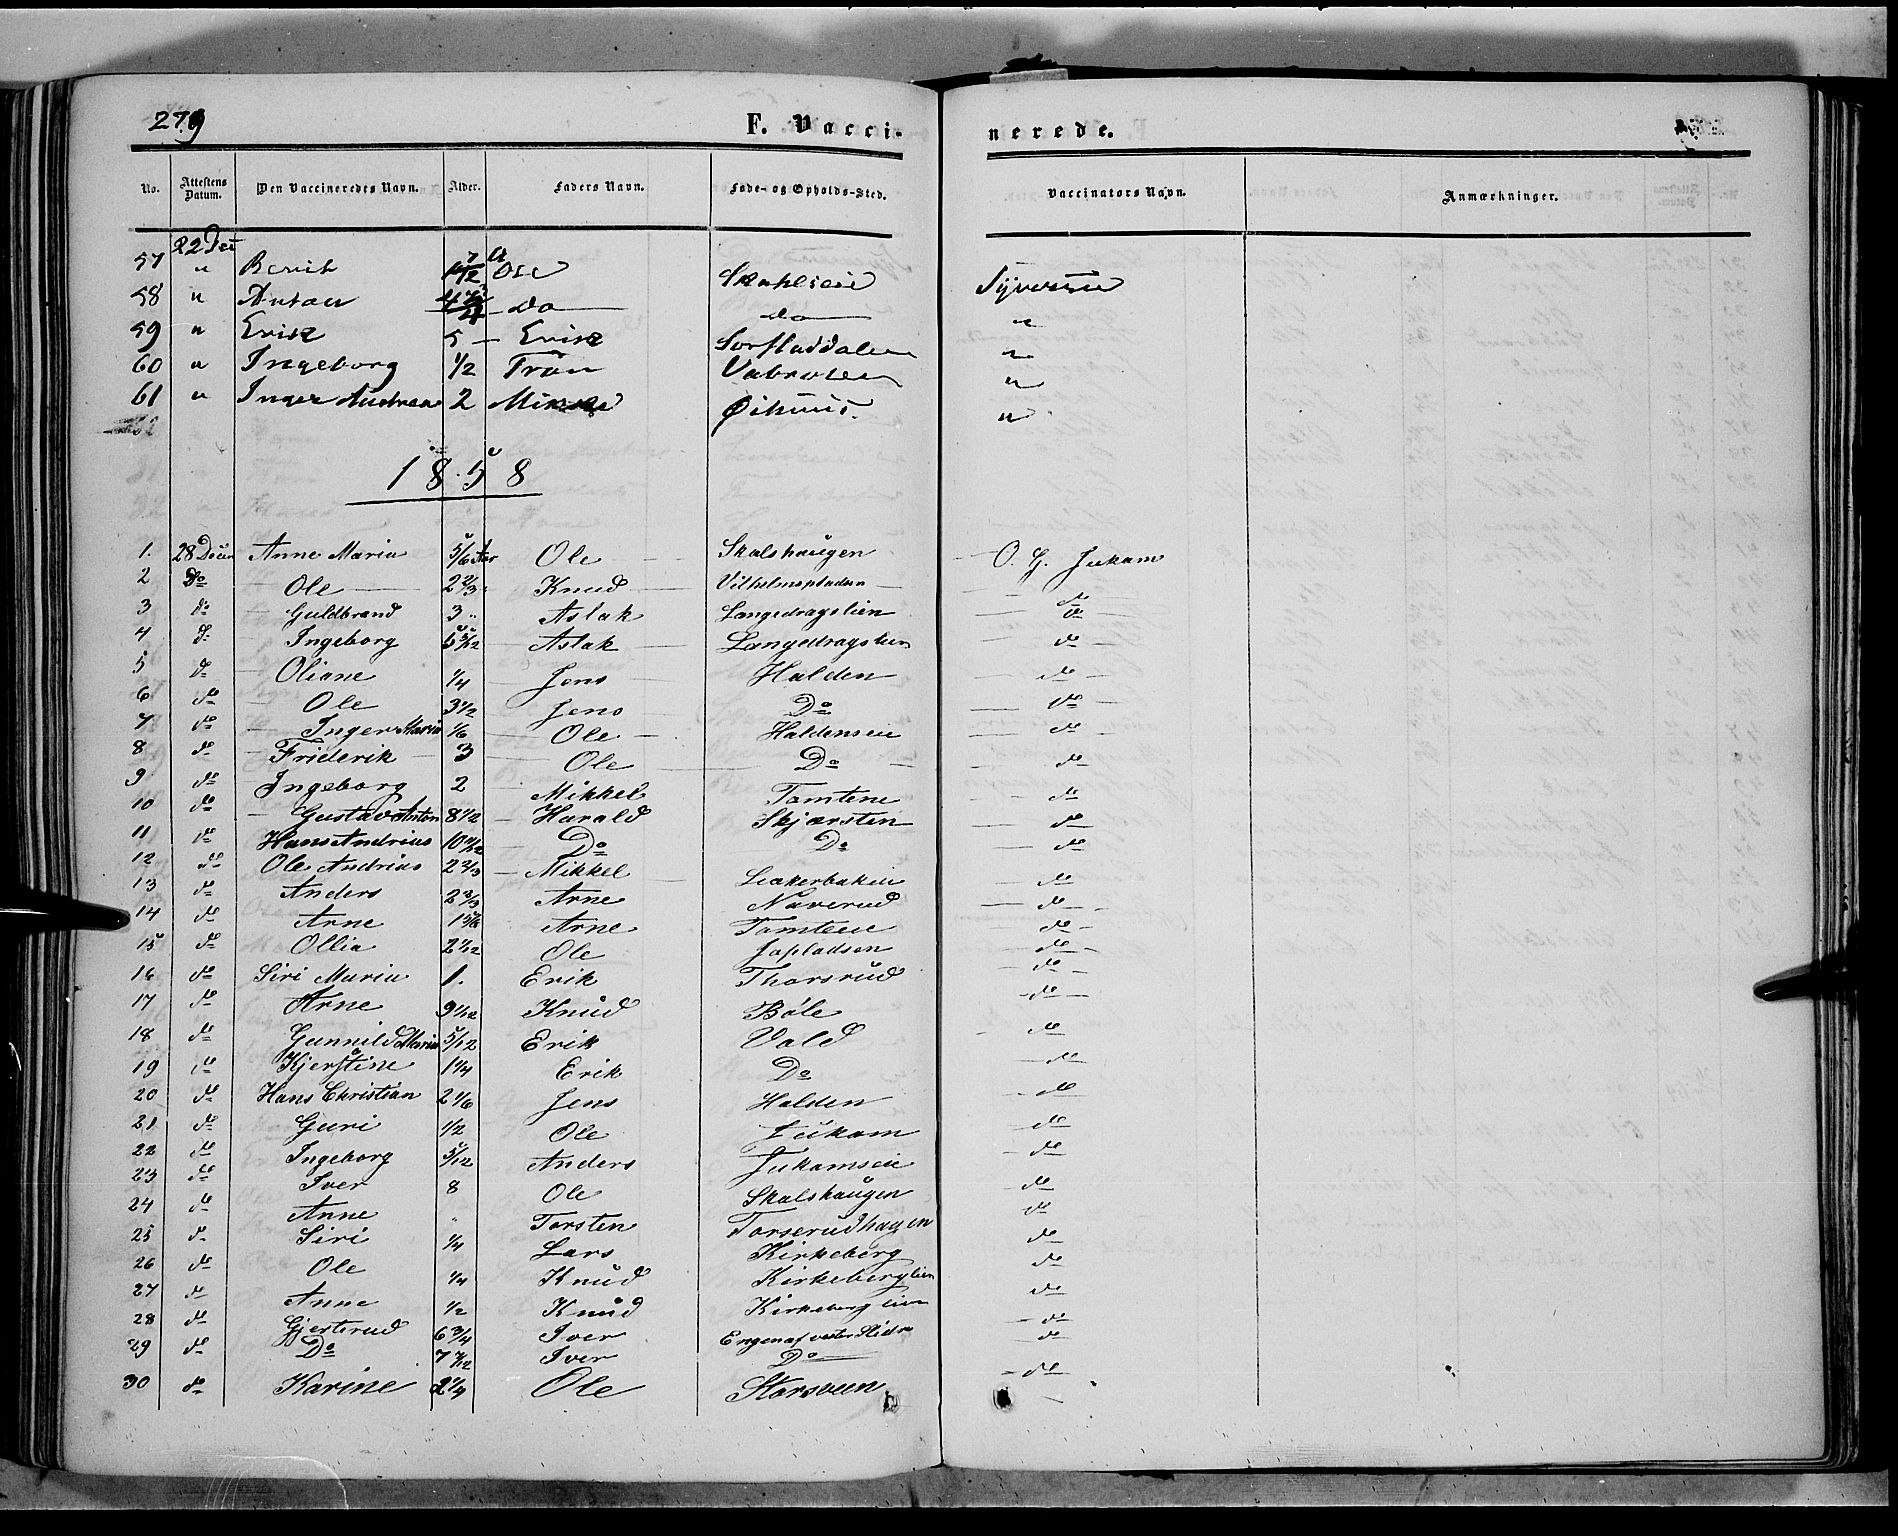 279
F. Vacci- nerede.
No. Attestens Datum. Den Vaccineredes Navn. Alder. Faders Navn. Føde- og Opholds-Sted. Vaccinators Navn. Anmærkninger.
22 Dec
57 " Berit Ole
58 " Anton do do "
59 " Erik 5 Erik "
60 " Ingeborg 1/2 Tron "
61 " Inger 2 "
1858
1. 28 Anne Maria 5/6 Aar Ole Skalshaugen O. G. Jukam
2 Do Ole 2 2/3 Knud Vilhelmspladsen do
3 do Guldbrand 3 " Aslak Langedragslien do
4 do Ingeborg 5 5/12 Aslak Langedragslien do
5 do Oliane 1/4 Jens Halden do
6 do Ole 3 1/2 Jens Do do
7 do Inger Maria 1/6 Ole Haldenseie do
8 do Friderik 3 Ole Do do
9 do Ingeborg 2 Mikkel Tomtene do
10 do Gustav Anton 8 1/2 Harald Skjærsten do
11 do Hans Andrias Do Do do
12 do Ole Andrias 2 2/3 Mikkel do
13 do Anders 2 2/3 Arne Naverud do
14 do Arne Arne Tomtene do
15 do Ollia 2 1/12 Ole do
16 do Siri Maria 1. Erik Thorsrud do
17 do Arne 9 1/12 Knud Bøle do
18 do Gunnild Maria 5/12 Erik Vold do
19 do Kjerstine 1 1/4 Erik Do do
20 do Hans Christian 2 1/6 Jens Halden do
21 do Guri 1/2 Ole Jukam do
22 do Ingeborg 5/12 Anders Jukamseie do
23 do Iver 8 Ole Skalshaugen do
24 do Anne " Torsten Torserudhagen do
25 do Siri 1/4 Lars Kirkeberg do
26 do Ole 1/4 Knud Kirkeberglien do
27 do Anne 1/2 Knud Kirkeberglien do
28 do Gjertrud 6 3/4 Iver Engen af vester Slidre do
29 do Do 7 7/12 Iver Do do
30 do Karine 2 1/4 Ole Storsveen do